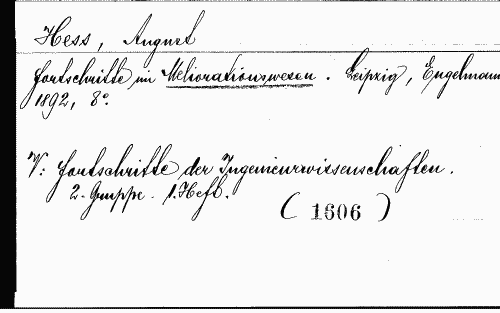 Hess, August
Fortschritte im Meliorationswesen. Leipzig, Engelmann
1892, 8°.
V: Fortschritte der Ingenieurwissenschaften.
2. Gruppe. 1. Heft.
( 1606 )